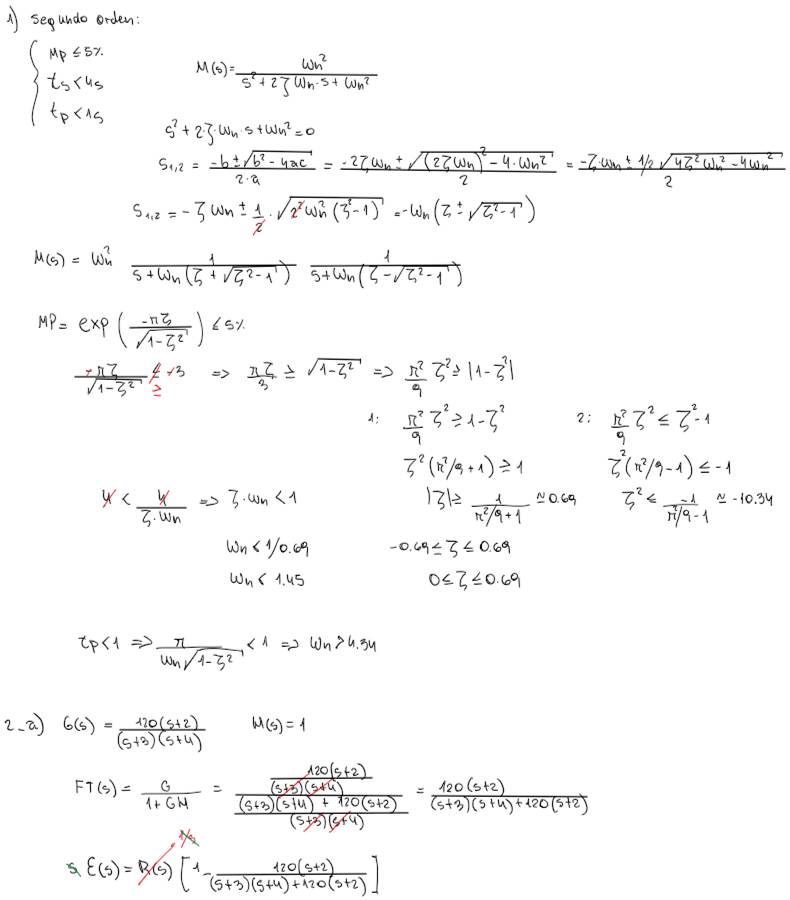 1) Segundo orden:
Mp ≤ 5%
ts < 4s
tp < 1s
M(s) = ωn² / (s² + 2ζωn·s + ωn²)
s² + 2·ζ·ωn·s + ωn² = 0
S1,2 = (-b ± √(b² - 4ac)) / (2·a) = (-2ζωn ± √((2ζωn)² - 4·ωn²)) / 2 = (-ζ·ωn ± 1/2 √(4ζ²ωn² - 4ωn²)) / 2
S1,2 = -ζωn ± 1/2 · √(2²ωn²(ζ²-1)) = -ωn(ζ ± √(ζ²-1))
M(s) = ωn² 1/(s+ωn(ζ+√(ζ²-1))) 1/(s+ωn(ζ-√(ζ²-1)))
MP = exp(-πζ/√(1-ζ²)) ≤ 5%
-πζ/√(1-ζ²) ≤ -3 ≥ => πζ/3 ≥ √(1-ζ²) => π²/9 ζ² ≥ |1-ζ²|
1: π²/9 ζ² ≥ 1-ζ² 2: π²/9 ζ² ≤ ζ²-1
ζ²(π²/9+1) ≥ 1 ζ²(π²/9-1) ≤ -1
4 < 4/(ζ·ωn) => ζ·ωn < 1 |ζ| ≥ 1/(π²/9+1) ≃ 0.69 ζ² ≤ -1/(π²/9-1) ≃ -10.34
ωn < 1/0.69 -0.69 ≤ ζ ≤ 0.69
ωn < 1.45 0 ≤ ζ ≤ 0.69
tp < 1 => π/(ωn√(1-ζ²)) < 1 => ωn > 4.34
2-a) G(s) = 120(s+2)/((s+3)(s+4)) M(s) = 1
FT(s) = G/(1+GM) = (120(s+2)/((s+3)(s+4))) / (((s+3)(s+4) + 120(s+2))/((s+3)(s+4))) = 120(s+2)/((s+3)(s+4)+120(s+2))
1/s
s E(s) = R(s) [1 - 120(s+2)/((s+3)(s+4)+120(s+2))]